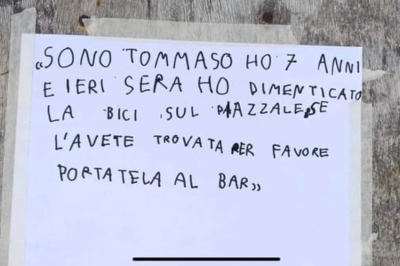 «SONO TOMMASO HO 7 ANNI
E IERI SERA HO DIMENTICATO
LA BICI SUL PIAZZALE, SE
L'AVETE TROVATA PER FAVORE
PORTATELA AL BAR»